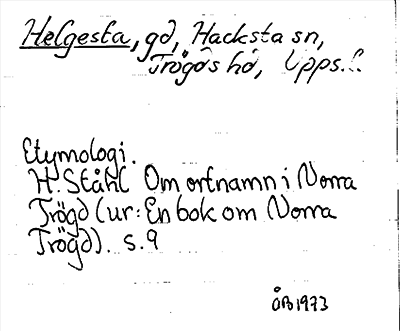 Helgesta, gd, Hacksta sn,
Trögds hd, Upps.l.
Etymologi.
H. Ståhl Om ortnamn i Norra
Trögd (ur: En bok om Norra
Trögd). s. 9
ÅB 1973